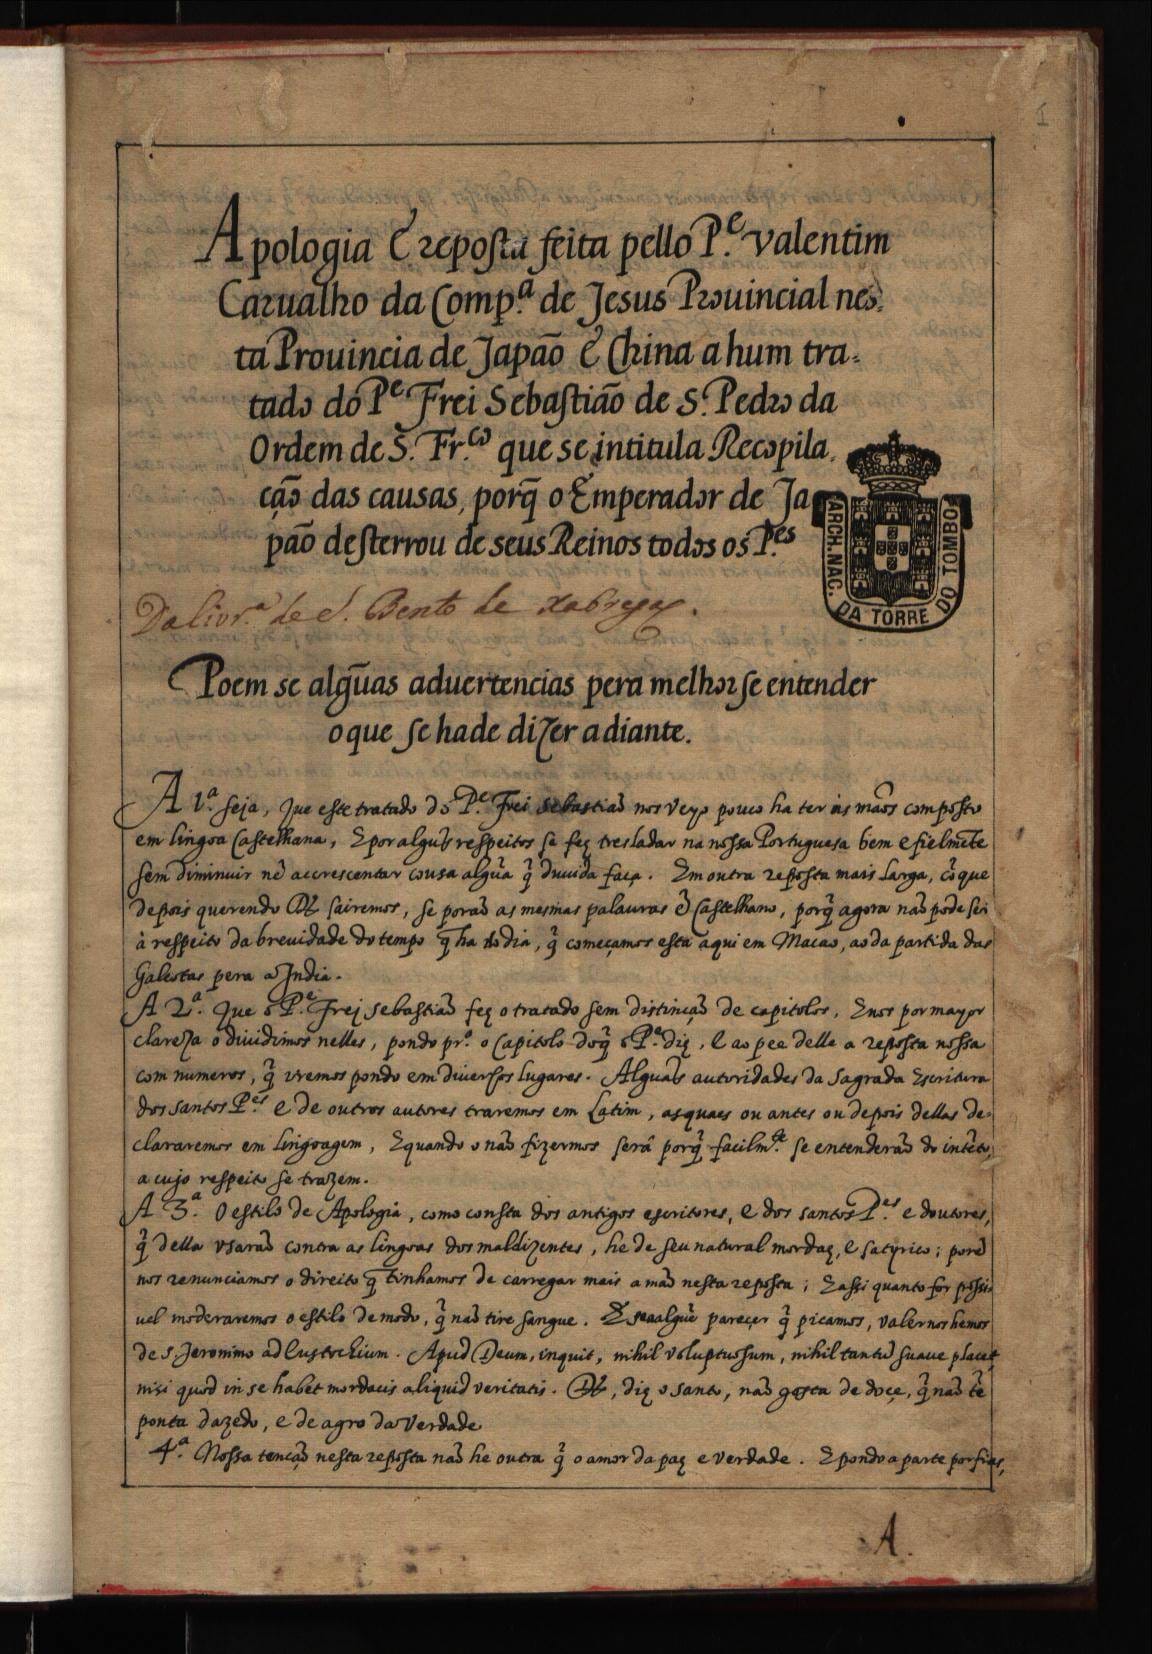 1
Apologia E reposta feita pello P.e Valentim
Carualho da Comp.a de Jesus Prouincial nes=
ta Prouincia de Japaõ E China a hum tra=
tado do P.e Frei Sebastiaõ de S. Pedro da
Ordem de S. Fr.co que se intitula Recopila
çaõ das causas, porq̃ o Emperador de Ja
paõ desterrou de seus Reinos todos os P.es
ARCH. NAC. DA TORRE DO TOMBO
Da livr.a de S. Bento de Xabregas.
Poem se algũas aduertencias pera melhor se entender
o que se hade dizer adiante.
A 1.a seja, Que este tratado do P.e Frei Sebastiaõ nos veyo pouco ha ter ás maõs composto
em lingoa Castelhana, E por algũs respeitos se fez tresladar na nossa Portuguesa bem e fielmẽte
sem diminuir nẽ accrescentar cousa algũa q̃ duuida faça. Em outra reposta mais larga, cõ que
depois querendo Ds sairemos, se poraõ as mesmas palauras ẽ Castelhano, porq̃ agora naõ pode ser
à respeito da breuidade do tempo q̃ ha do dia, q̃ começamos esta aqui em Macao, ao da partida das
Galeotas pera a India.
A 2.a Que o P.e Frej Sebastiaõ fez o tratado sem distinçaõ de capitolos, E nos por mayor
clareza o diuidimos nelles, pondo pr.o o Capitolo do q̃ o P.e diz, E ao pee delle a reposta nossa
com numeros, q̃ iremos pondo em diuersos lugares. Alguãs autoridades da Sagrada Escritura
dos santos P.es e de outros autores traremos em Latim, as quaes ou antes ou depois dellas de-
clararemos em lingoagem, E quando o naõ fizermos será porq̃ facilm.te se entenderaõ do intẽto,
a cujo respeito se trazem.
A 3.a O estilo de Apologia, como consta dos antigos escritores, e dos santos P.es e doutores,
q̃ della vsaraõ contra as lingoas dos maldizentes, he de seu natural mordaz, e satyrico; porẽ
nos renunciamos o direito q̃ tinhamos de carregar mais a maõ nesta reposta; E assi quanto for possi=
uel moderaremos o estilo de modo, q̃ naõ tire sangue. E se a alguẽ parecer q̃ picamos, valer nos hemos
de S. Jeronimo ad Eustochium. Apud Deum, inquit, nihil voluptuosum, nihil tantũ suaue placet
nisi quod in se habet mordacis aliquid veritatis. Ds, diz o santo, naõ gosta de doçe, q̃ naõ tẽ
ponta dazedo, e de agro da verdade
4.a Nossa tençaõ nesta reposta naõ he outra q̃ o amor da paz e verdade. E pondo a parte porfias,
A.